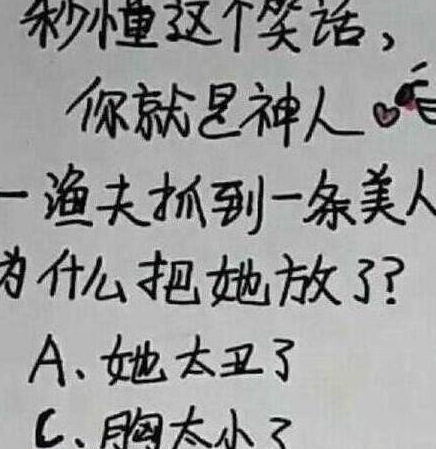 秒懂这个笑话，
你就是神人
一渔夫抓到一条美人
为什么把她放了?
A、她太丑了
C、胸太小了